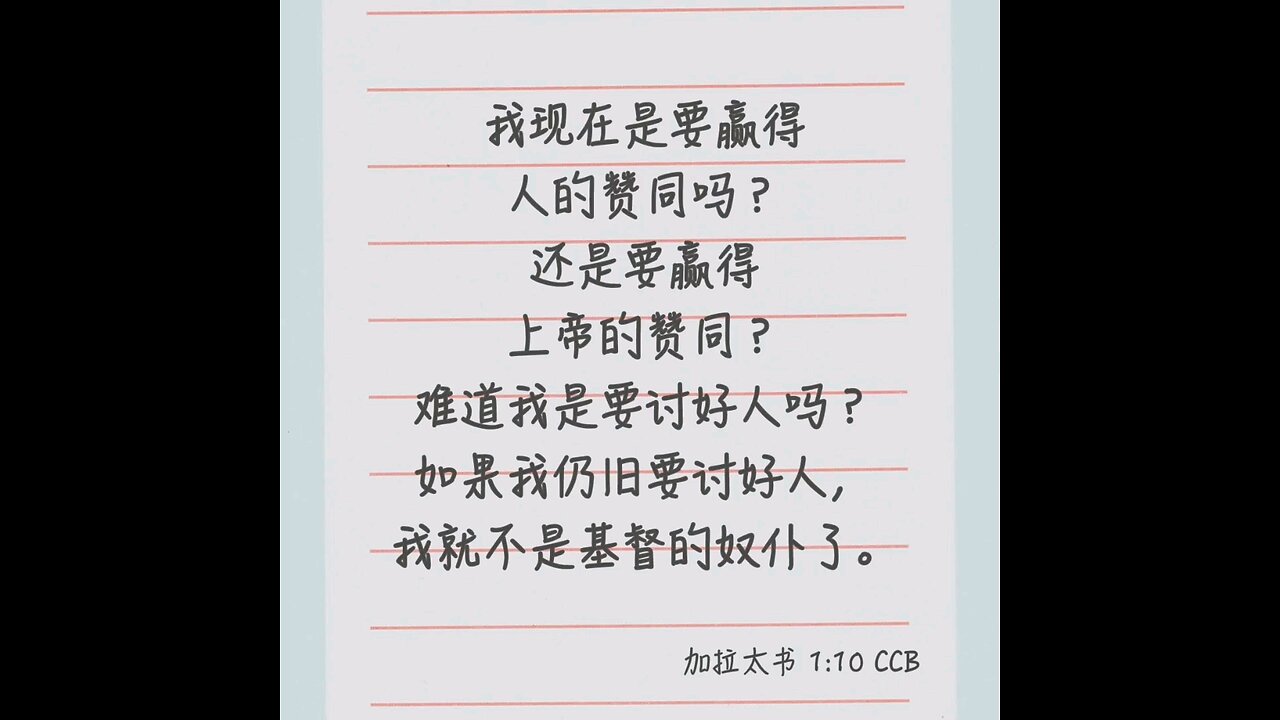 我现在是要赢得
人的赞同吗？
还是要赢得
上帝的赞同？
难道我是要讨好人吗？
如果我仍旧要讨好人，
我就不是基督的奴仆了。
加拉太书 1:10 CCB